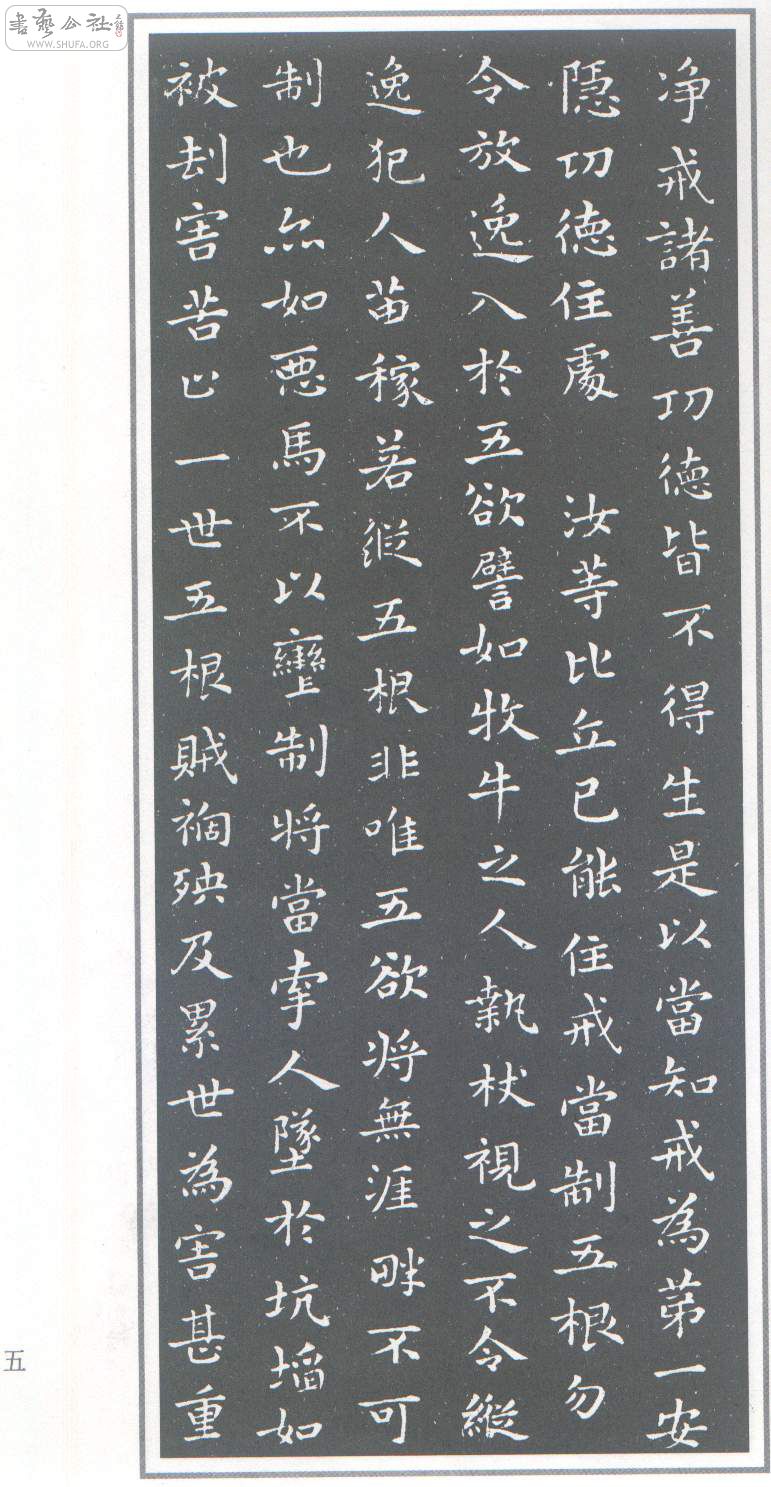 書藝公社
WWW.SHUFA.ORG
淨戒諸善功德皆不得生是以當知戒為第一安
隱功德住處 汝等比丘已能住戒當制五根勿
令放逸入於五欲譬如牧牛之人執杖視之不令縱
逸犯人苗稼若縱五根非唯五欲將無涯畔不可
制也亦如惡馬不以轡制將當牽人墜於坑埳如
被刦害苦止一世五根賊禍殃及累世為害甚重
五